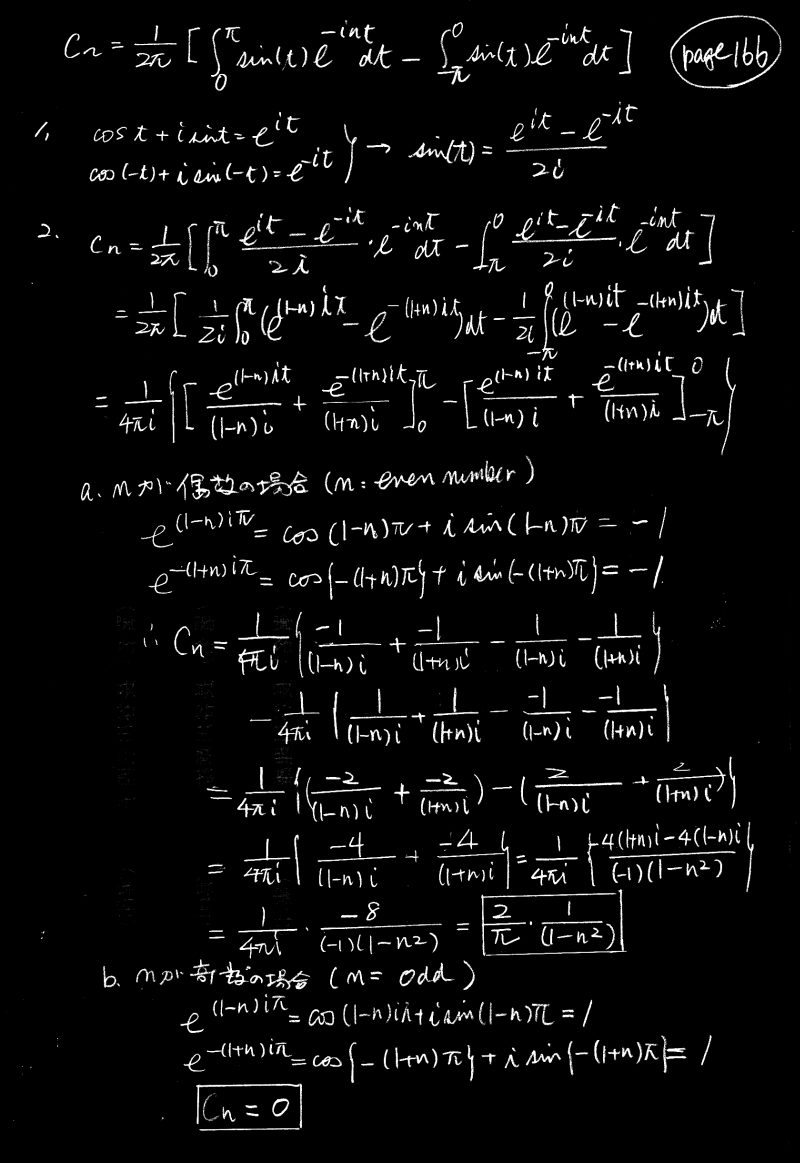 Cn = 1/2π [ ∫_0^π sin(t) e^{-int} dt − ∫_{-π}^0 sin(t) e^{-int} dt ] page 166
1. cos t + i sin t = e^{it}
cos(-t) + i sin(-t) = e^{-it} } → sin(t) = (e^{it} − e^{-it})/2i
2. Cn = 1/2π [ ∫_0^π (e^{it} − e^{-it})/2i · e^{-int} dt − ∫_{-π}^0 (e^{it} − e^{-it})/2i · e^{-int} dt ]
= 1/2π [ 1/2i ∫_0^π (e^{(1-n)it} − e^{-(1+n)it}) dt − 1/2i ∫_{-π}^0 (e^{(1-n)it} − e^{-(1+n)it}) dt ]
= 1/4πi { [ e^{(1-n)it}/(1-n)i + e^{-(1+n)it}/(1+n)i ]_0^π − [ e^{(1-n)it}/(1-n)i + e^{-(1+n)it}/(1+n)i ]_{-π}^0 }
a. nが偶数の場合 (n: even number)
e^{(1-n)iπ} = cos(1-n)π + i sin(1-n)π = -1
e^{-(1+n)iπ} = cos{-(1+n)π} + i sin{-(1+n)π} = -1
∴ Cn = 1/4πi { -1/(1-n)i + -1/(1+n)i − 1/(1-n)i − 1/(1+n)i }
− 1/4πi { 1/(1-n)i + 1/(1+n)i − -1/(1-n)i − -1/(1+n)i }
= 1/4πi { ( -2/(1-n)i + -2/(1+n)i ) − ( 2/(1-n)i + 2/(1+n)i ) }
= 1/4πi { -4/(1-n)i + -4/(1+n)i } = 1/4πi { (-4(1+n)i − 4(1-n)i)/((-1)(1-n²)) }
= 1/4πi · -8/((-1)(1-n²)) = 2/π · 1/(1-n²)
b. nが奇数の場合 (n = odd)
e^{(1-n)iπ} = cos(1-n)iπ + i sin(1-n)π = 1
e^{-(1+n)iπ} = cos{-(1+n)π} + i sin{-(1+n)π} = 1
Cn = 0